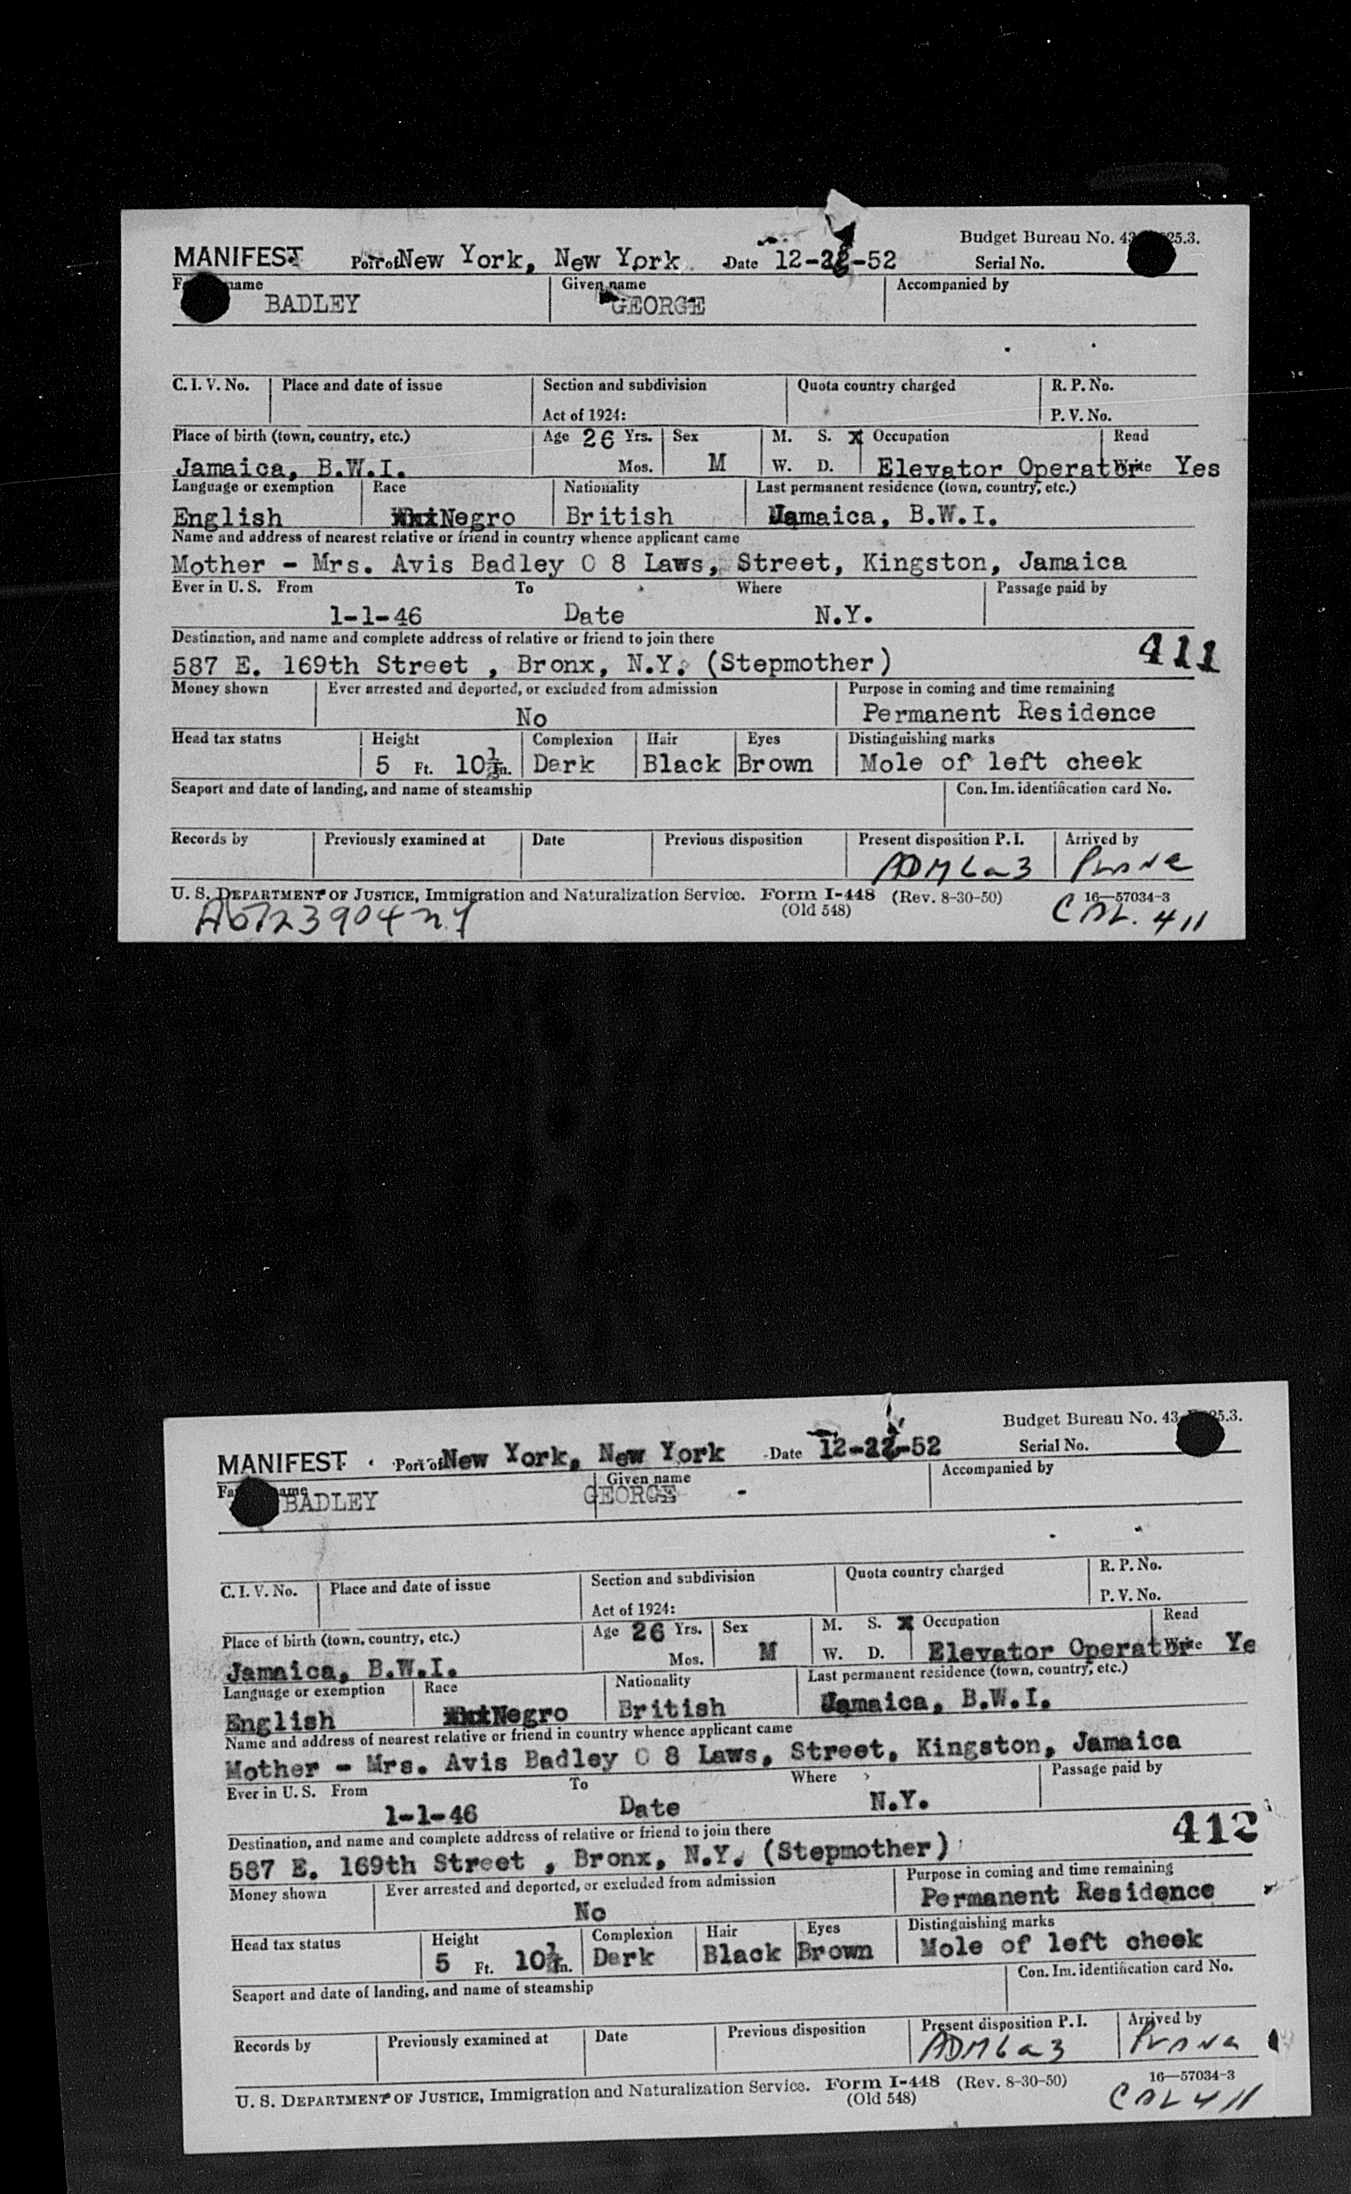 MANIFEST Port of New York, New York Date 12-22-52 Budget Bureau No. 43 25.3.
Serial No.
name BADLEY Given name GEORGE Accompanied by
C. I. V. No. Place and date of issue Section and subdivision Quota country charged R. P. No.
Act of 1924: P. V. No.
Place of birth (town, country, etc.) Age 26 Yrs. Sex M. S. X Occupation Read
Jamaica, B.W.I. Mos. M W. D. Elevator Operator Write Yes
Language or exemption Race Nationality Last permanent residence (town, country, etc.)
English Negro British Jamaica, B.W.I.
Name and address of nearest relative or friend in country whence applicant came
Mother - Mrs. Avis Badley O 8 Laws, Street, Kingston, Jamaica
Ever in U. S. From To Where Passage paid by
1-1-46 Date N.Y.
Destination, and name and complete address of relative or friend to join there
587 E. 169th Street , Bronx, N.Y. (Stepmother) 411
Money shown Ever arrested and deported, or excluded from admission Purpose in coming and time remaining
No Permanent Residence
Head tax status Height Complexion Hair Eyes Distinguishing marks
5 Ft. 10½ In. Dark Black Brown Mole of left cheek
Seaport and date of landing, and name of steamship Con. Im. identification card No.
Records by Previously examined at Date Previous disposition Present disposition P. I. Arrived by
ADM 6a3 Plane
U. S. DEPARTMENT OF JUSTICE, Immigration and Naturalization Service. Form I-448 (Rev. 8-30-50) 16—57034-3
(Old 548)
A6723904 ny CAL. 411
MANIFEST Port of New York, New York Date 12-22-52 Budget Bureau No. 43 25.3.
Serial No.
BADLEY Given name GEORGE Accompanied by
C. I. V. No. Place and date of issue Section and subdivision Quota country charged R. P. No.
Act of 1924: P. V. No.
Place of birth (town, country, etc.) Age 26 Yrs. Sex M. S. X Occupation Read
Jamaica, B.W.I. Mos. M W. D. Elevator Operator Write Ye
Language or exemption Race Nationality Last permanent residence (town, country, etc.)
English Negro British Jamaica, B.W.I.
Name and address of nearest relative or friend in country whence applicant came
Mother - Mrs. Avis Badley O 8 Laws, Street, Kingston, Jamaica
Ever in U. S. From To Where Passage paid by
1-1-46 Date N.Y.
Destination, and name and complete address of relative or friend to join there
587 E. 169th Street , Bronx, N.Y. (Stepmother) 412
Money shown Ever arrested and deported, or excluded from admission Purpose in coming and time remaining
No Permanent Residence
Head tax status Height Complexion Hair Eyes Distinguishing marks
5 Ft. 10½ In. Dark Black Brown Mole of left cheek
Seaport and date of landing, and name of steamship Con. Im. identification card No.
Records by Previously examined at Date Previous disposition Present disposition P. I. Arrived by
ADM 6a3 Plane
U. S. DEPARTMENT OF JUSTICE, Immigration and Naturalization Service. Form I-448 (Rev. 8-30-50) 16—57034-3
(Old 548)
CAL 411